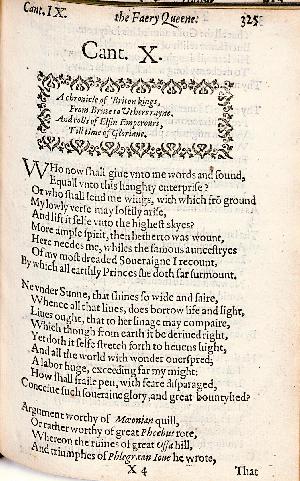 Cant. IX. the Faery Queene. 325
Cant. X.
A chronicle of Briton kings,
From Brute to Vthers rayne.
And rolls of Elfin Emperours,
Till time of Gloriane.
WHo now shall giue vnto me words and sound,
Equall vnto this haughty enterprise?
Or who shall lend me wings, with which frō ground
My lowly verse may loftily arise,
And lift it selfe vnto the highest skyes?
More ample spirit, then hetherto was wount,
Here needes me, whiles the famous auncestryes
Of my most dreaded Soueraigne I recount,
By which all earthly Princes she doth far surmount.
Ne vnder Sunne, that shines so wide and faire,
Whence all that liues, does borrow life and light,
Liues ought, that to her linage may compaire,
Which though from earth it be deriued right,
Yet doth it selfe stretch forth to heuens hight,
And all the world with wonder ouerspred;
A labor huge, exceeding far my might:
How shall fraile pen, with feare disparaged,
Conceiue such soueraine glory, and great bountyhed?
Argument worthy of Mœonian quill,
Or rather worthy of great Phoebus rote,
Whereon the ruines of great Ossa hill,
And triumphes of Phlegræan Ioue he wrote,
X 4 That